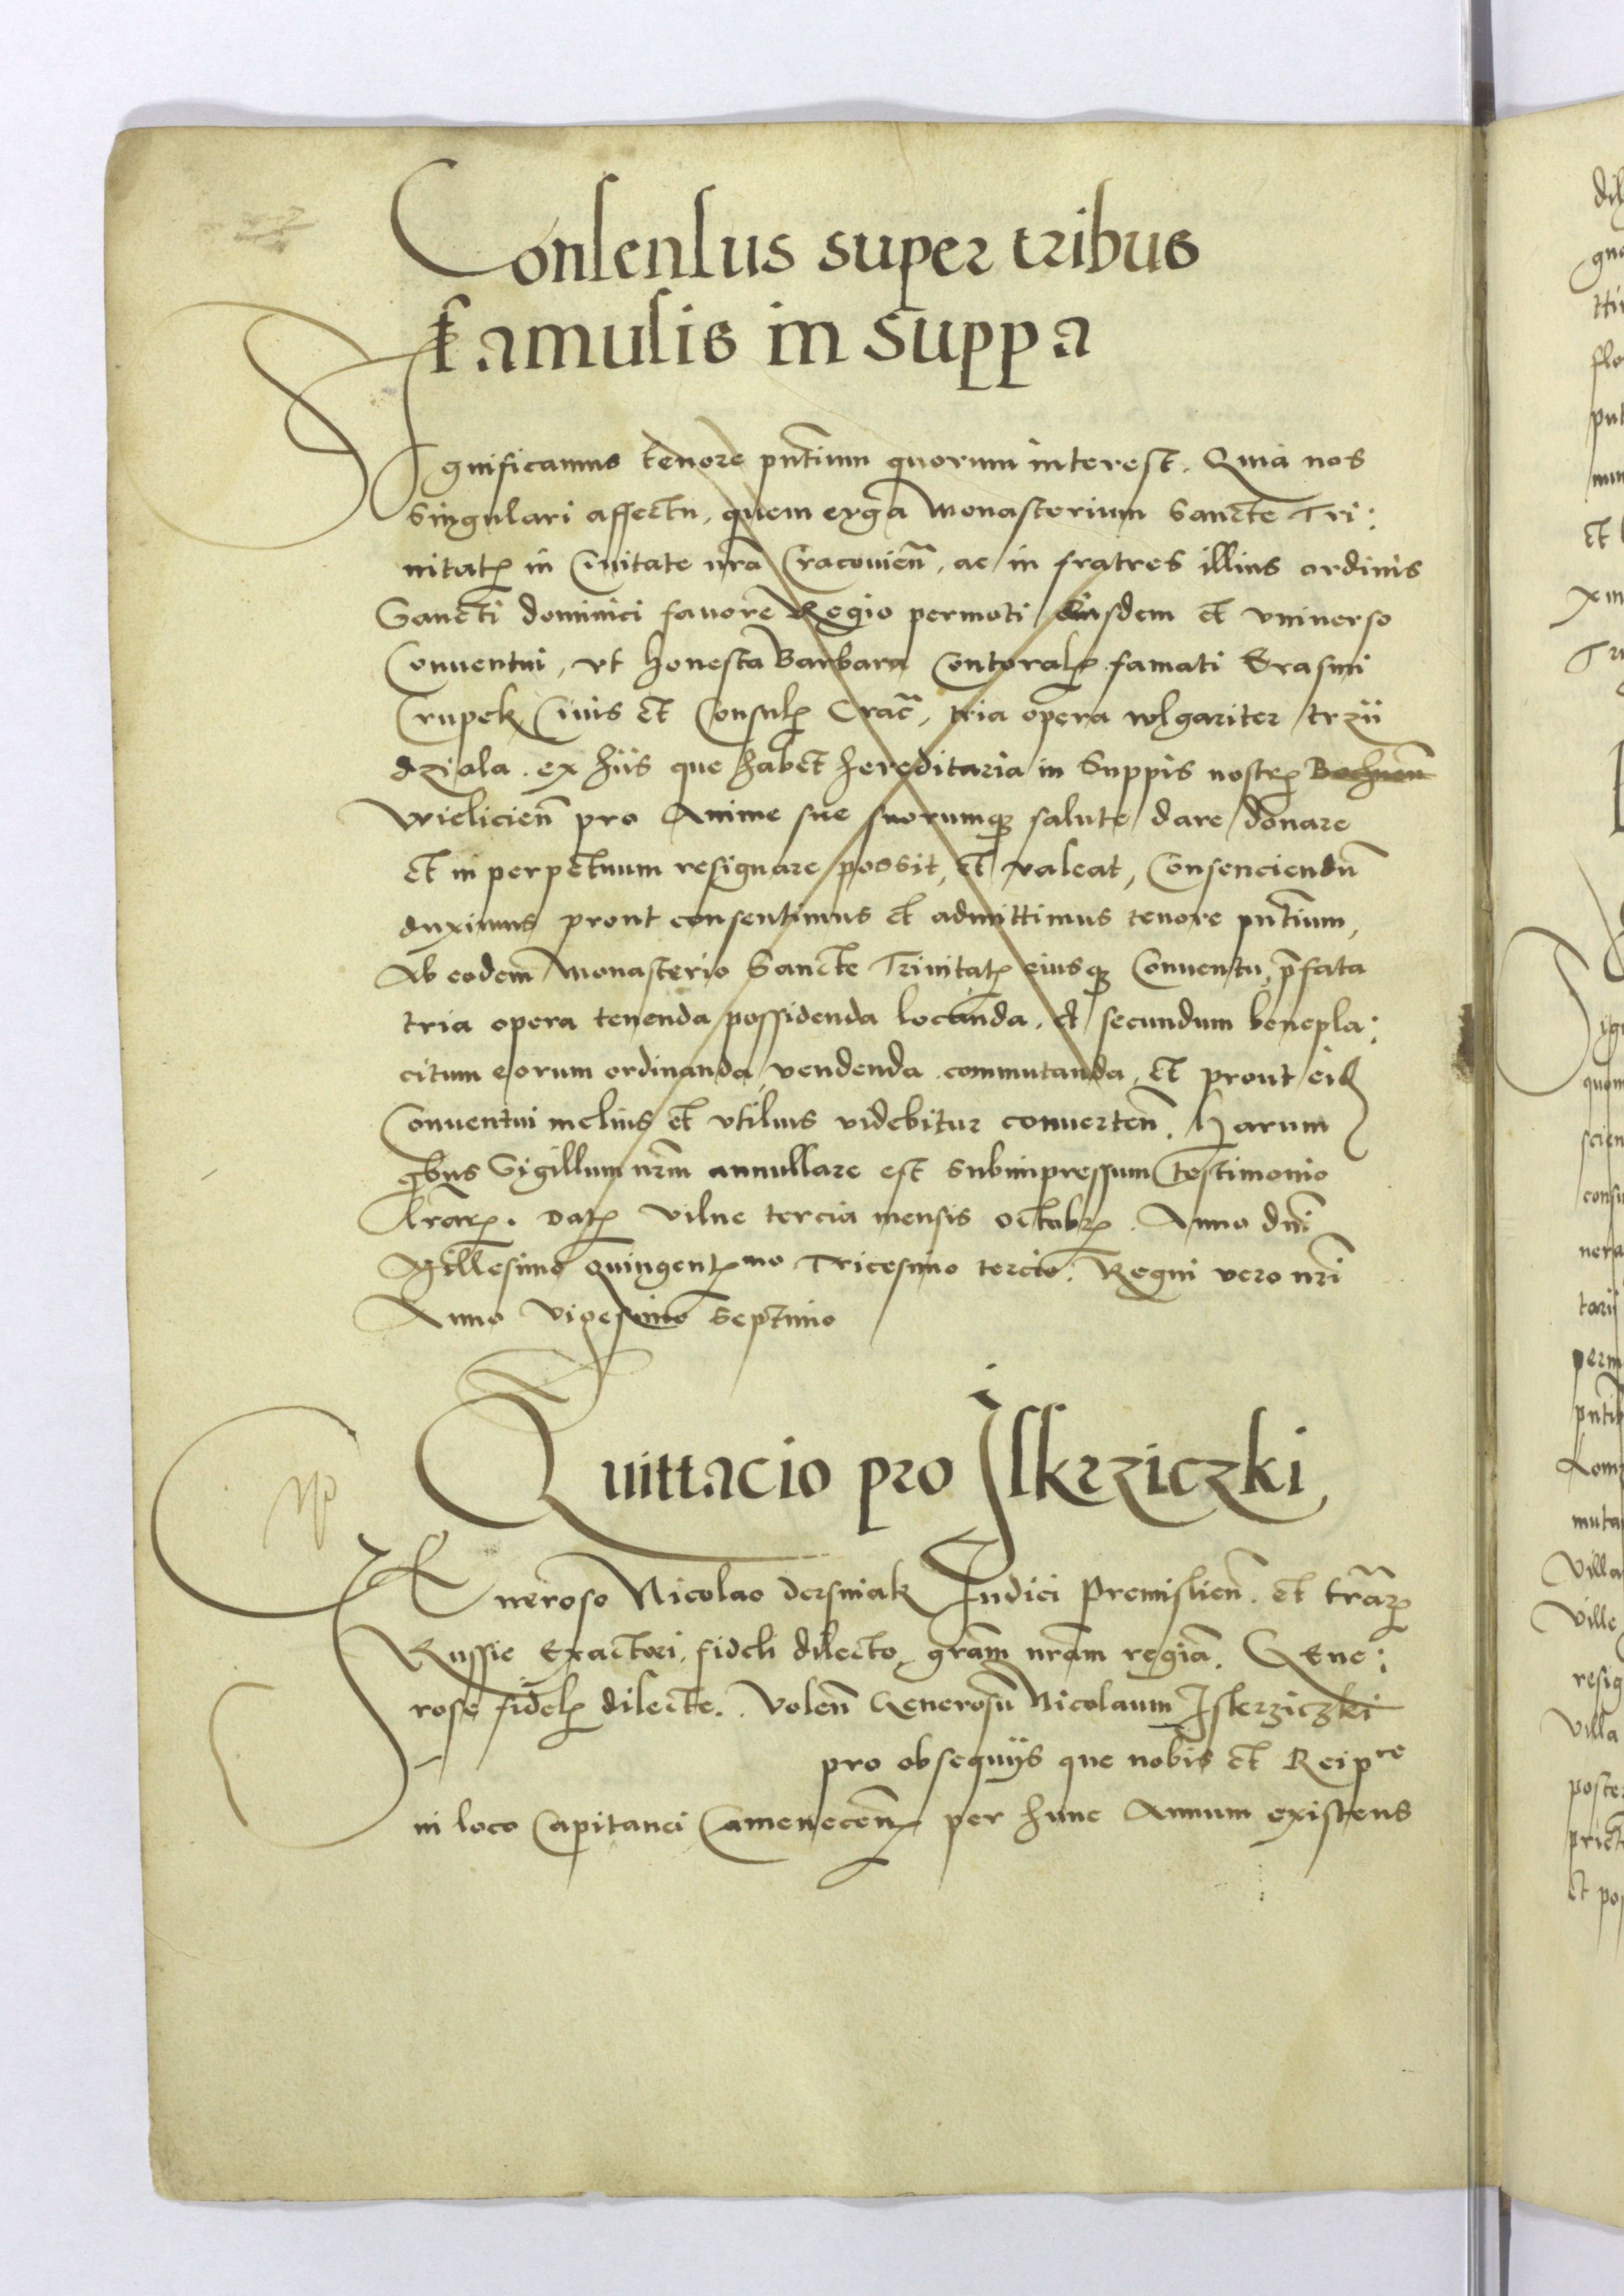 Consensus super tribus
famulis in Suppa
Significamus tenore pñtium quorum interest. Quia nos
singulari affectu, quem erga Monasterium Sancte Tri:
nitatꝭ in Ciuitate nrã Cracouieñ, ac in fratres illius ordinis
Sancti dominici fauore Regio permoti eiusdem et vniuerso
Conuentui, vt honesta Barbara Contoralꝭ famati Erasmi
Crupek Ciuis et Consulꝭ Crac̃, tria opera wlgariter trzii
dziala. ex hiis que habet hereditaria in Suppis nostrꝭ Bochneñ
Wielicieñ pro Anime sue suorumqꝫ salute dare donare
et in perpetuum resignare possit, et valeat, Consenciendũ
duximus prout consentimus et admittimus tenore pñtium,
Ab eodem Monasterio Sancte Trinitatꝭ eiusqꝫ Conuentu, p̃fata
tria opera tenenda possidenda locanda, et secundum benepla:
citum eorum ordinanda, vendenda commutanda, et prout eidꝭ
Conuentui melius et vtilius videbitur conuerteñ. Harum
qbus Sigillum nrm̃ annullare est subimpressum testimonio
lrãrꝭ. Datꝭ Vilne tercia mensis octobrꝭ. Anno dnĩ
Millesimo quingentꝭmo Tricesimo tercio. Regni vero nrĩ
Anno vigesimo septimo
Quittacio pro Iskrziczki
np
GEneroso Nicolao dersniak Iudici Premislieñ. et trãrꝭ
Russie Exactori, fideli dilecto, grãm nrãm regiã. GEne:
rose fidelꝭ dilecte. Voleñ Generosũ Nicolaum Iskrziczki
pro obsequijs que nobis et Reipce
in loco Capitanei Cameneceñ per hunc Annum existens